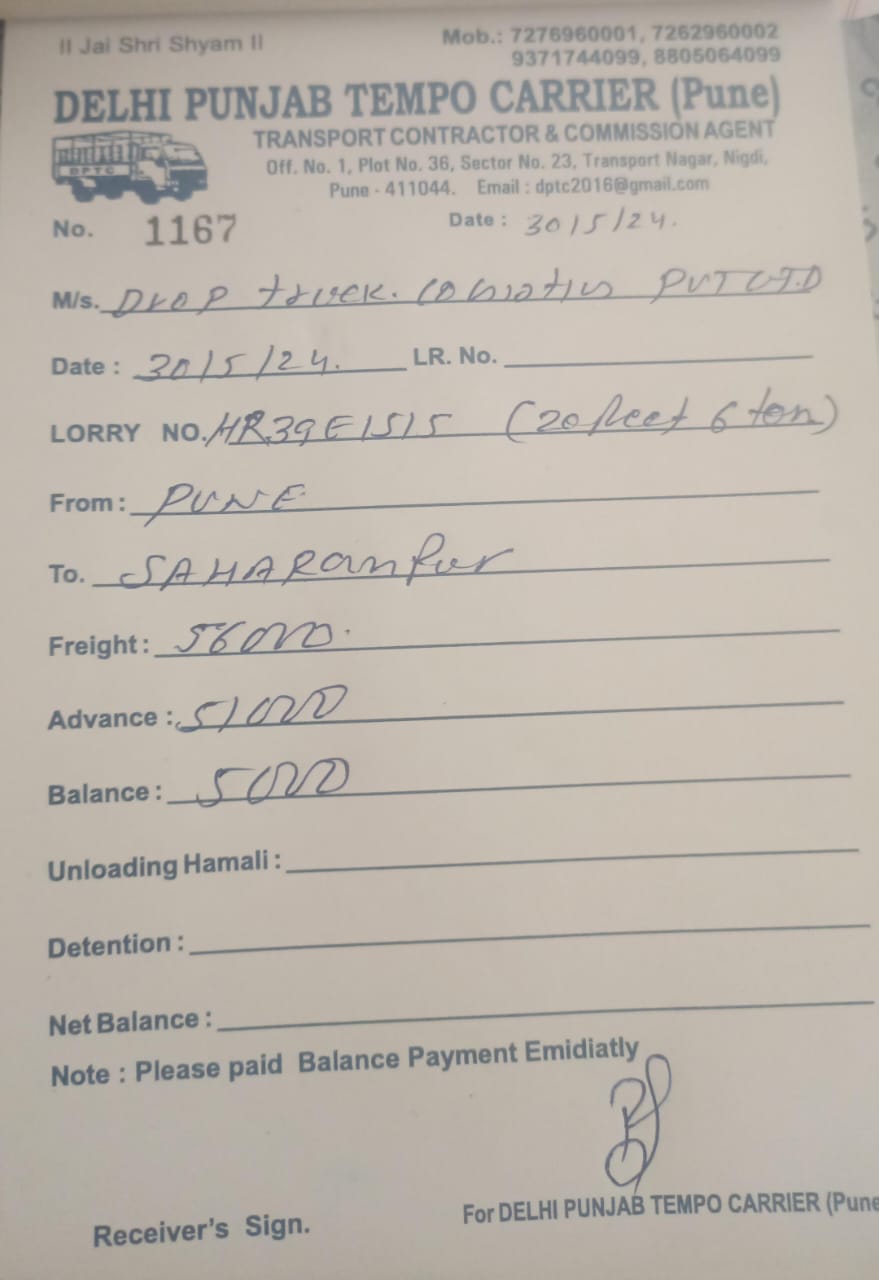 || Jai Shri Shyam ||
Mob.: 7276960001, 7262960002
9371744099, 8805064099
DELHI PUNJAB TEMPO CARRIER (Pune)
TRANSPORT CONTRACTOR & COMMISSION AGENT
DPTC
Off. No. 1, Plot No. 36, Sector No. 23, Transport Nagar, Nigdi,
Pune - 411044. Email : dptc2016@gmail.com
No. 1167 Date : 30/5/24.
M/s. Drop truck. Logistics PVT LTD
Date : 30/5/24. LR. No.
LORRY NO. HR39E1515 (20 feet 6 ton)
From : PUNE
To. SAHARanpur
Freight : 56000.
Advance : 51000
Balance : 5000
Unloading Hamali :
Detention :
Net Balance :
Note : Please paid Balance Payment Emidiatly
Receiver's Sign. For DELHI PUNJAB TEMPO CARRIER (Pune